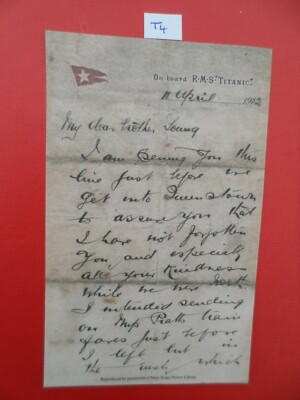 T4
On board R.M.S. "TITANIC."
11 April 1912
My dear brother Young
I am penning you this
line just before we
get into Queenstown
to assure you that
I have not forgotten
you, and especially
all your kindness
while we were North
I intended sending
on Mrs Pratts train
fares just before
I left but in
the rush, which
Reproduced by permission of